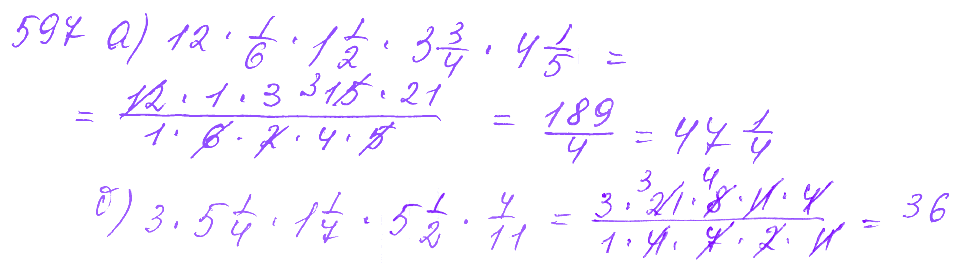 597 а) 12 · 1/6 · 1 1/2 · 3 3/4 · 4 1/5 =
= (12 · 1 · 3 · 3 15 · 21)/(1 · 6 · 2 · 4 · 5) = 189/4 = 47 1/4
б) 3 · 5 1/4 · 1 1/7 · 5 1/2 · 4/11 = (3 · 3 21 · 4 8 · 11 · 4)/(1 · 4 · 7 · 2 · 11) = 36